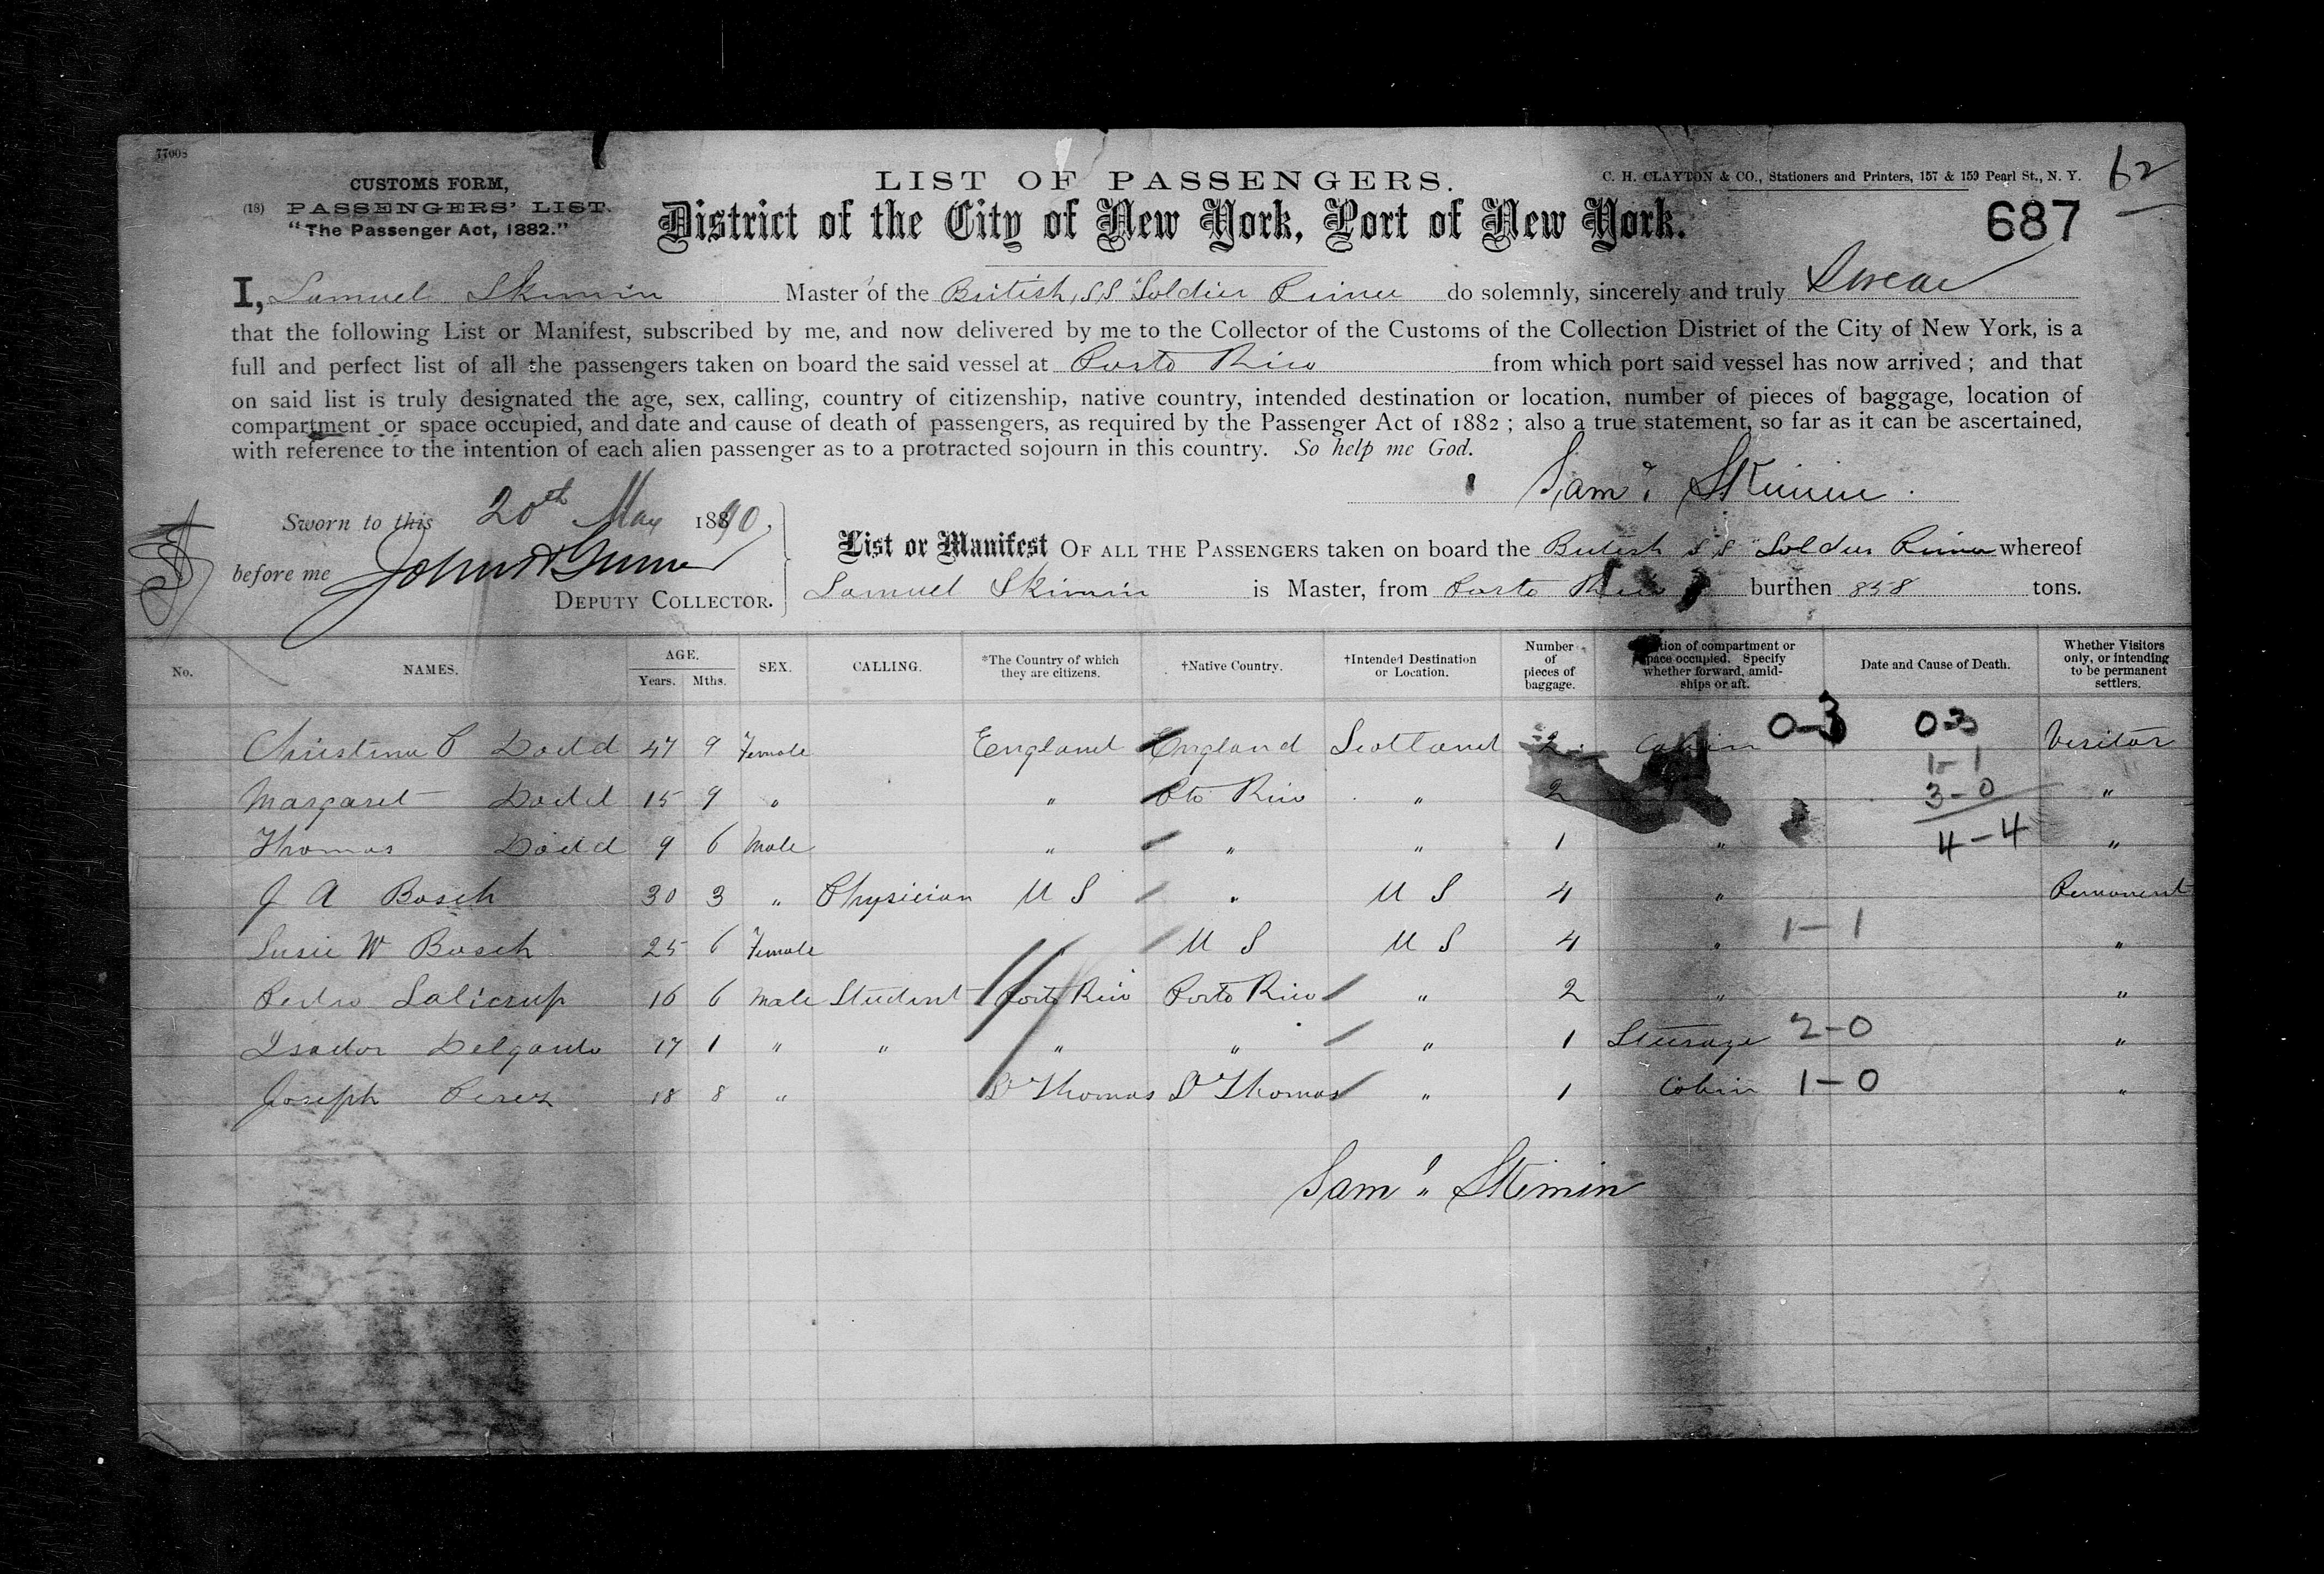 77008
CUSTOMS FORM,
(18) PASSENGERS' LIST.
"The Passenger Act, 1882."
LIST OF PASSENGERS.
C. H. CLAYTON & CO., Stationers and Printers, 157 & 159 Pearl St., N. Y.
62
District of the City of New York, Port of New York.
687
I, Samuel Skimin Master of the British SS "Soldier Prince do solemnly, sincerely and truly Swear
that the following List or Manifest, subscribed by me, and now delivered by me to the Collector of the Customs of the Collection District of the City of New York, is a
full and perfect list of all the passengers taken on board the said vessel at Porto Rico from which port said vessel has now arrived; and that
on said list is truly designated the age, sex, calling, country of citizenship, native country, intended destination or location, number of pieces of baggage, location of
compartment or space occupied, and date and cause of death of passengers, as required by the Passenger Act of 1882; also a true statement, so far as it can be ascertained,
with reference to the intention of each alien passenger as to a protracted sojourn in this country. So help me God.
Saml. Skimin.
Sworn to this 20th May 1890,
before me
DEPUTY COLLECTOR.
List or Manifest OF ALL THE PASSENGERS taken on board the British SS "Soldier Prince whereof
Samuel Skimin is Master, from Porto Rico burthen 858 tons.
No. NAMES. AGE. Years. Mths. SEX. CALLING. *The Country of which they are citizens. †Native Country. †Intended Destination or Location. Number of pieces of baggage. tion of compartment or space occupied. Specify whether forward, amid-ships or aft. Date and Cause of Death. Whether Visitors only, or intending to be permanent settlers.
Christina P Dodd 47 9 Female England England Scotland 2 Cabin 0-3 0-3 Visitor
1-1
Margaret Dodd 15 9 " " Pto Rico " 2 3-0 "
Thomas Dodd 9 6 Male " " " 1 " 4-4 "
J A Bosch 30 3 " Physician U S " U S 4 " Permanent
Susie W Bosch 25 6 Female U S U S 4 " 1-1 "
Pedro Salicrup 16 6 Male Student Porto Rico Porto Rico " 2 " "
Isador Delgardo 17 1 " " " " " 1 Steerage 2-0 "
Joseph Perez 18 8 " St Thomas St Thomas " 1 Cabin 1-0 "
Saml. Skimin